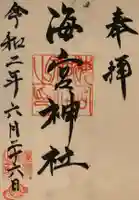 奉拝
海宮神社
令和二年六月二十六日